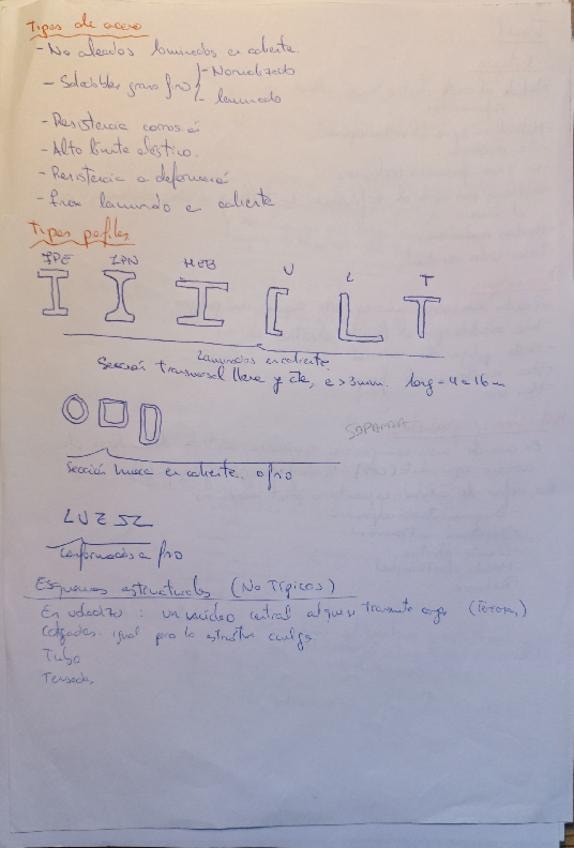 Tipos de acero
- No aleados laminados en caliente.
- Soldables grano fino
- Normalizado
- laminado
- Resistencia corrosió
- Alto límite elástico.
- Resistencia a deformació
- laminado e caliente
Tipos perfiles
IPE IPN HEB U L T
Laminados en caliente.
Sección transversal llena y cte, e > 3mm. long = 4 a 16 m
SOPANDA
Sección hueca en caliente. o frio
L U Z
Conformados a frio
Esquemas estructurales (No Típicos)
En voladizo: un núcleo central al que se transmite cargas
Colgadas: igual pero la estructura cuelga
Tubo